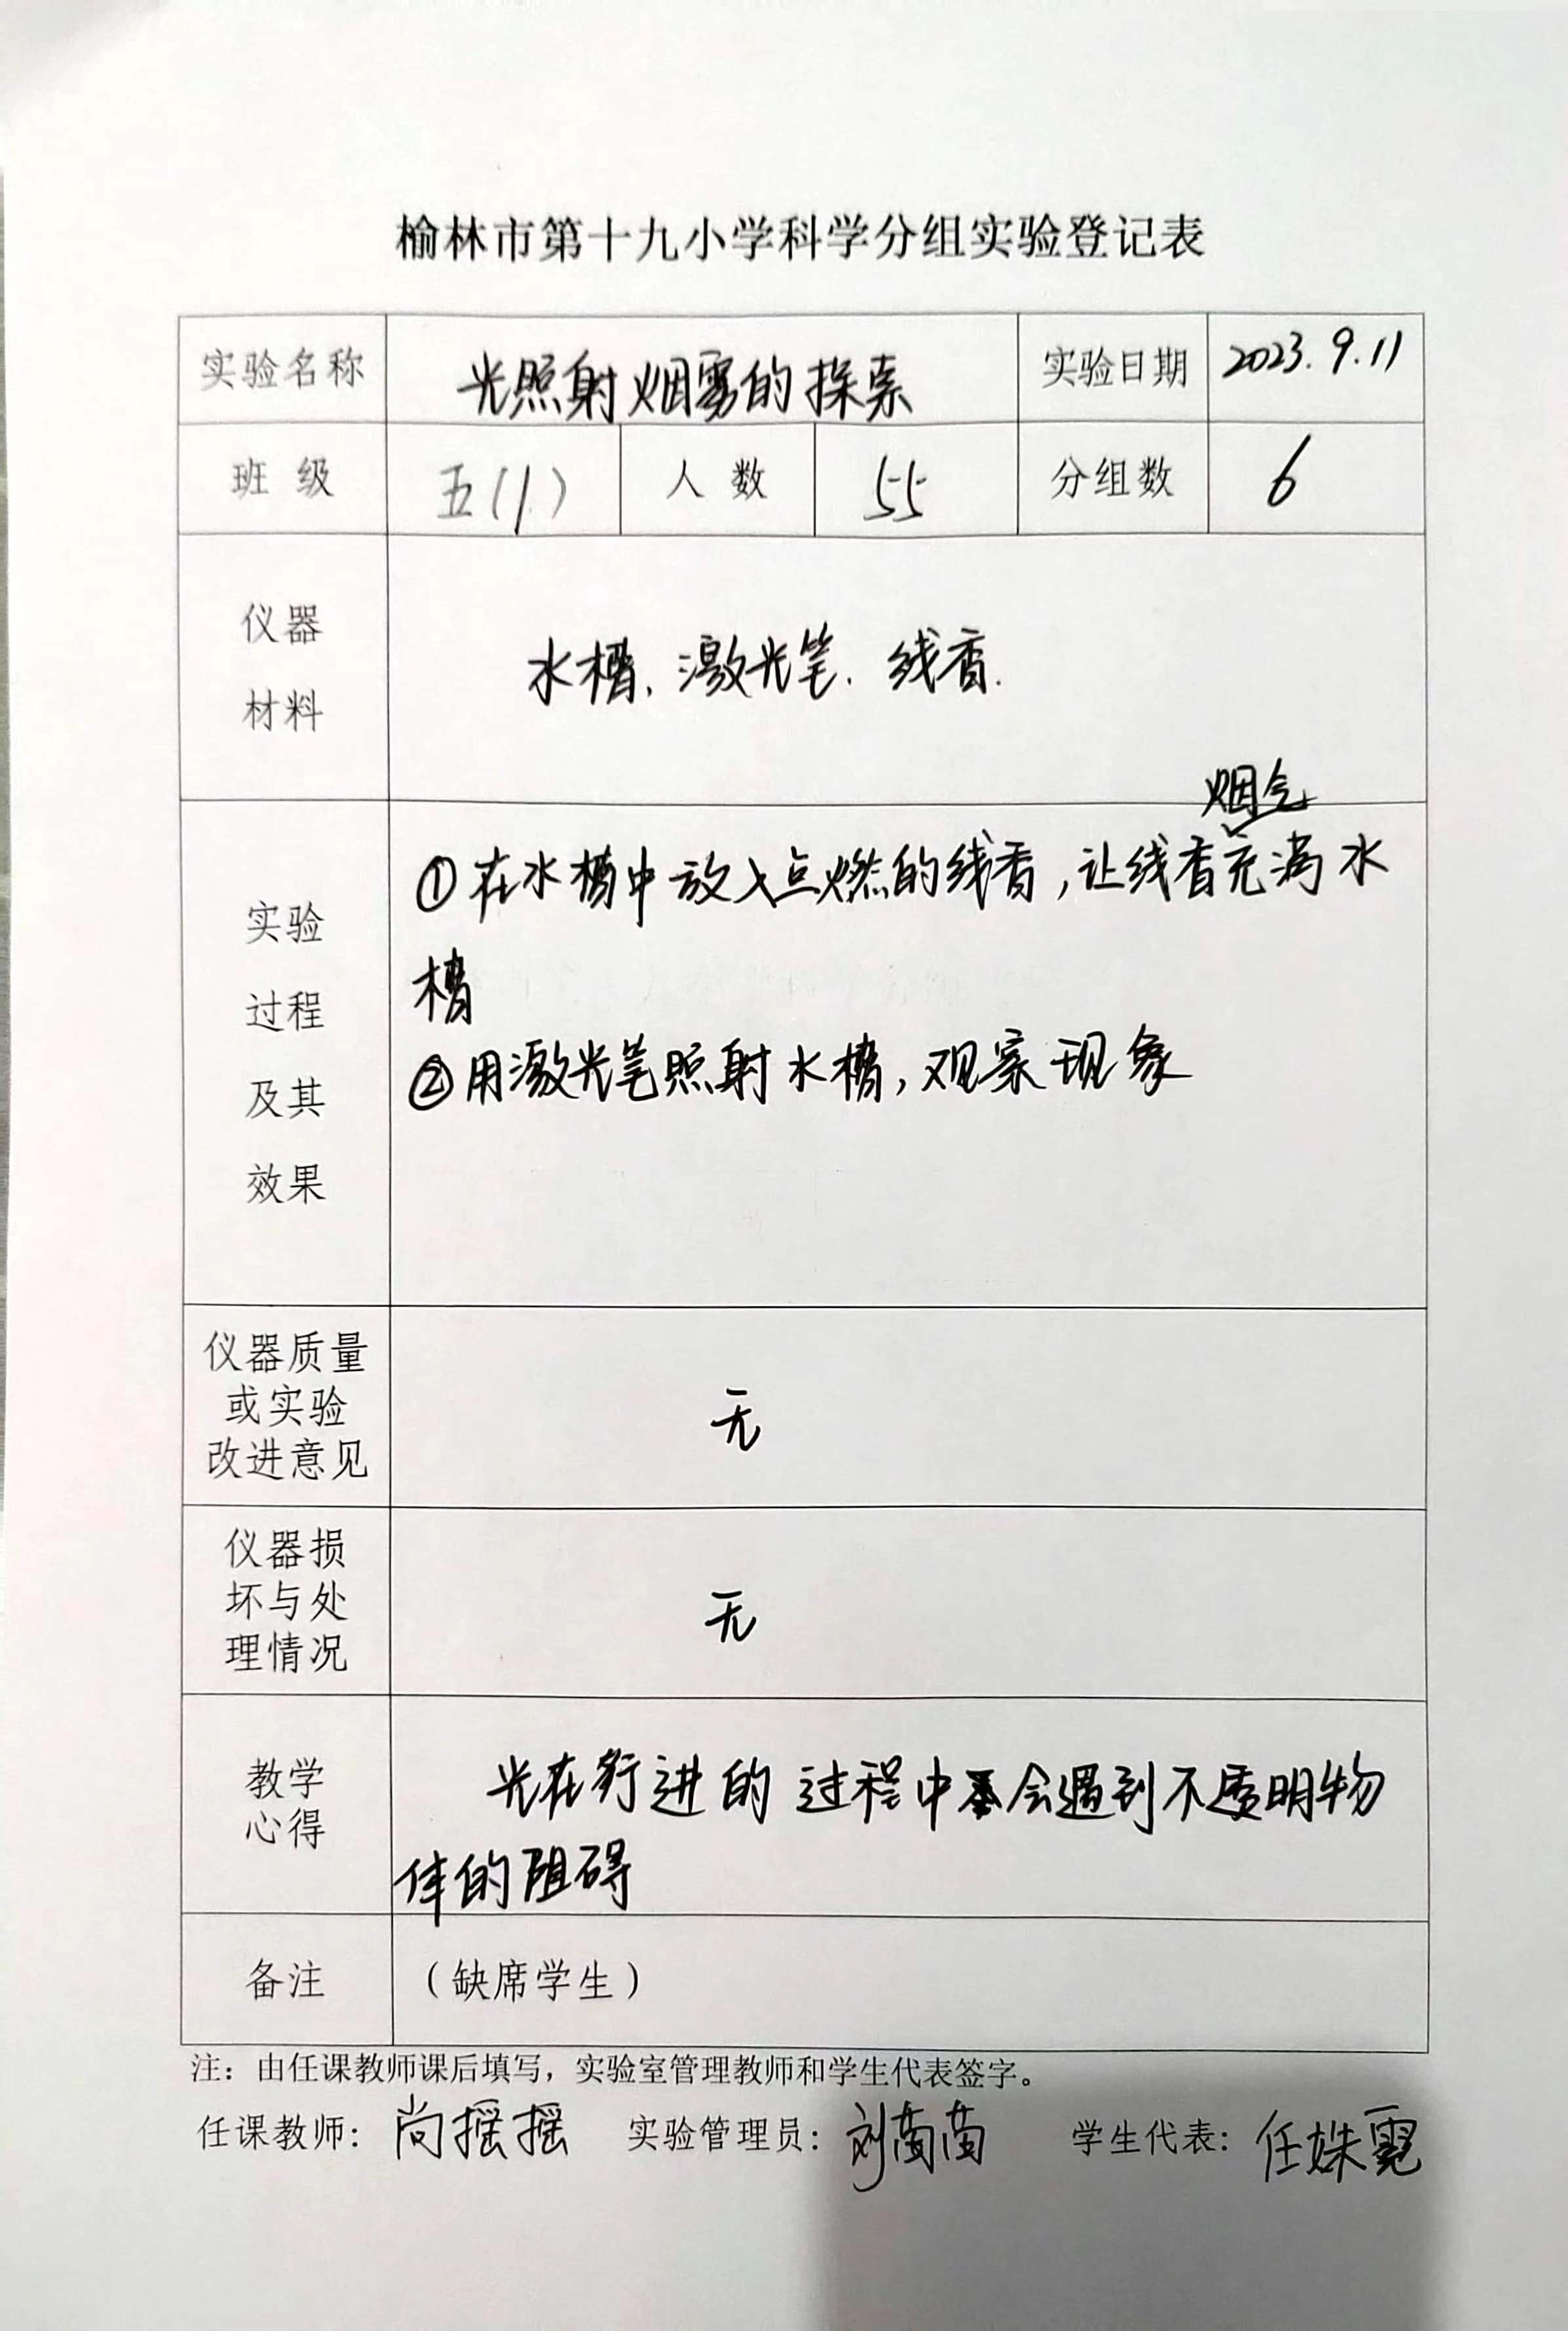 榆林市第十九小学科学分组实验登记表
实验名称 光照射烟雾的探索 实验日期 2023.9.11
班 级 五(1) 人 数 55 分组数 6
仪器
材料
水槽、激光笔、线香.
实验
过程
及其
效果
烟气
①在水槽中放入点燃的线香,让线香充满水
槽
②用激光笔照射水槽,观察现象
仪器质量
或实验
改进意见
无
仪器损
坏与处
理情况
无
教学
心得
光在行进的过程中会遇到不透明物
体的阻碍
备注 (缺席学生)
注：由任课教师课后填写，实验室管理教师和学生代表签字。
任课教师：尚摇摇 实验管理员：刘苗苗 学生代表：任姝霓